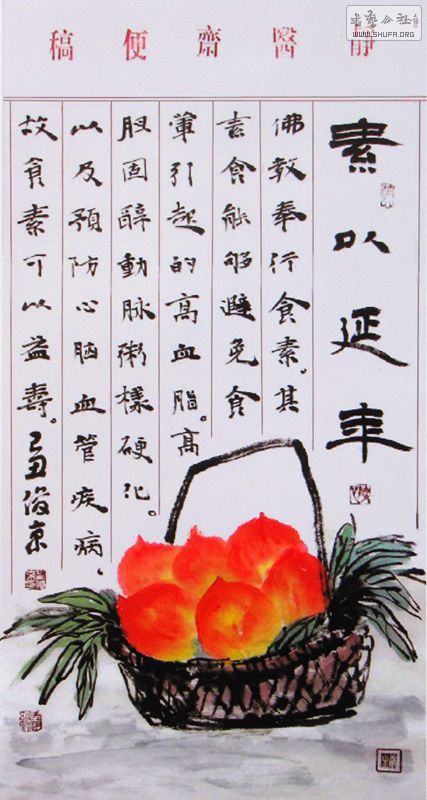 靜醫齋便稿
書藝公社
WWW.SHUFA.ORG
素以延年
佛教奉行食素。其
素食能够避免食
葷引起的高血脂。高
胆固醇動脉粥樣硬化。
以及預防心脑血管疾病、
故食素可以益壽。己丑俊京